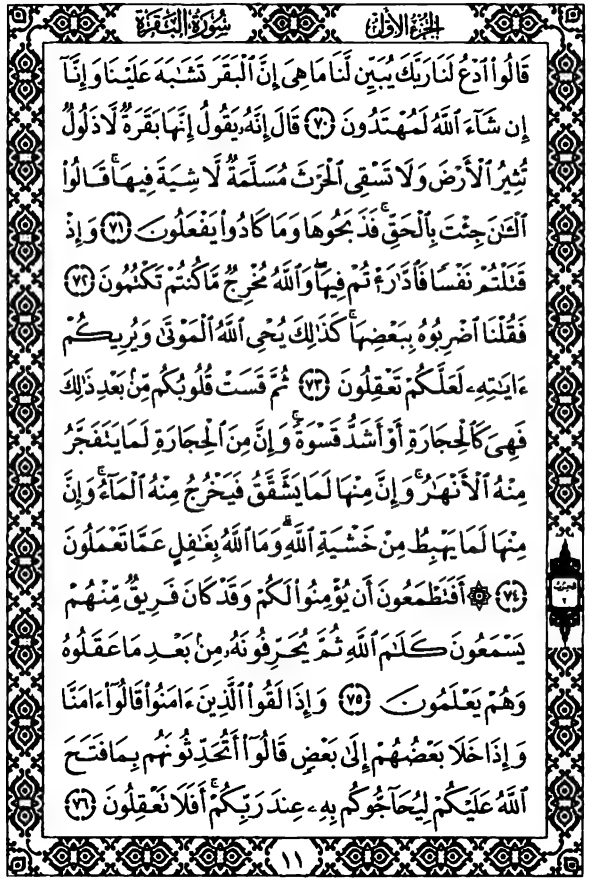 سُورَةُ البَقَرَةِ
الجُزءُ الأوّلُ
قَالُوا۟ ٱدْعُ لَنَا رَبَّكَ يُبَيِّن لَّنَا مَا هِىَ إِنَّ ٱلْبَقَرَ تَشَٰبَهَ عَلَيْنَا وَإِنَّآ
إِن شَآءَ ٱللَّهُ لَمُهْتَدُونَ ٧٠ قَالَ إِنَّهُۥ يَقُولُ إِنَّهَا بَقَرَةٌ لَّا ذَلُولٌ
تُثِيرُ ٱلْأَرْضَ وَلَا تَسْقِى ٱلْحَرْثَ مُسَلَّمَةٌ لَّا شِيَةَ فِيهَا ۚ قَالُوا۟
ٱلْـَٰٔنَ جِئْتَ بِٱلْحَقِّ ۚ فَذَبَحُوهَا وَمَا كَادُوا۟ يَفْعَلُونَ ٧١ وَإِذْ
قَتَلْتُمْ نَفْسًا فَٱدَّٰرَْٰٔتُمْ فِيهَا ۖ وَٱللَّهُ مُخْرِجٌ مَّا كُنتُمْ تَكْتُمُونَ ٧٢
فَقُلْنَا ٱضْرِبُوهُ بِبَعْضِهَا ۚ كَذَٰلِكَ يُحْىِ ٱللَّهُ ٱلْمَوْتَىٰ وَيُرِيكُمْ
ءَايَٰتِهِۦ لَعَلَّكُمْ تَعْقِلُونَ ٧٣ ثُمَّ قَسَتْ قُلُوبُكُم مِّنۢ بَعْدِ ذَٰلِكَ
فَهِىَ كَٱلْحِجَارَةِ أَوْ أَشَدُّ قَسْوَةً ۚ وَإِنَّ مِنَ ٱلْحِجَارَةِ لَمَا يَتَفَجَّرُ
مِنْهُ ٱلْأَنْهَٰرُ ۚ وَإِنَّ مِنْهَا لَمَا يَشَّقَّقُ فَيَخْرُجُ مِنْهُ ٱلْمَآءُ ۚ وَإِنَّ
مِنْهَا لَمَا يَهْبِطُ مِنْ خَشْيَةِ ٱللَّهِ ۗ وَمَا ٱللَّهُ بِغَٰفِلٍ عَمَّا تَعْمَلُونَ
٧٤ ۞ أَفَتَطْمَعُونَ أَن يُؤْمِنُوا۟ لَكُمْ وَقَدْ كَانَ فَرِيقٌ مِّنْهُمْ
يَسْمَعُونَ كَلَٰمَ ٱللَّهِ ثُمَّ يُحَرِّفُونَهُۥ مِنۢ بَعْدِ مَا عَقَلُوهُ
وَهُمْ يَعْلَمُونَ ٧٥ وَإِذَا لَقُوا۟ ٱلَّذِينَ ءَامَنُوا۟ قَالُوٓا۟ ءَامَنَّا
وَإِذَا خَلَا بَعْضُهُمْ إِلَىٰ بَعْضٍ قَالُوٓا۟ أَتُحَدِّثُونَهُم بِمَا فَتَحَ
ٱللَّهُ عَلَيْكُمْ لِيُحَآجُّوكُم بِهِۦ عِندَ رَبِّكُمْ ۚ أَفَلَا تَعْقِلُونَ ٧٦
١١